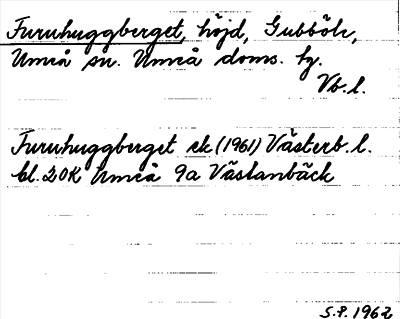 Furuhuggberget, höjd, Gubböle,
Umeå sn. Umeå doms. hg.
Vb. l.
Furuhuggberget ek (1961) Västerb. l.
bl. 20K Umeå 9a Västanbäck
S.P. 1962